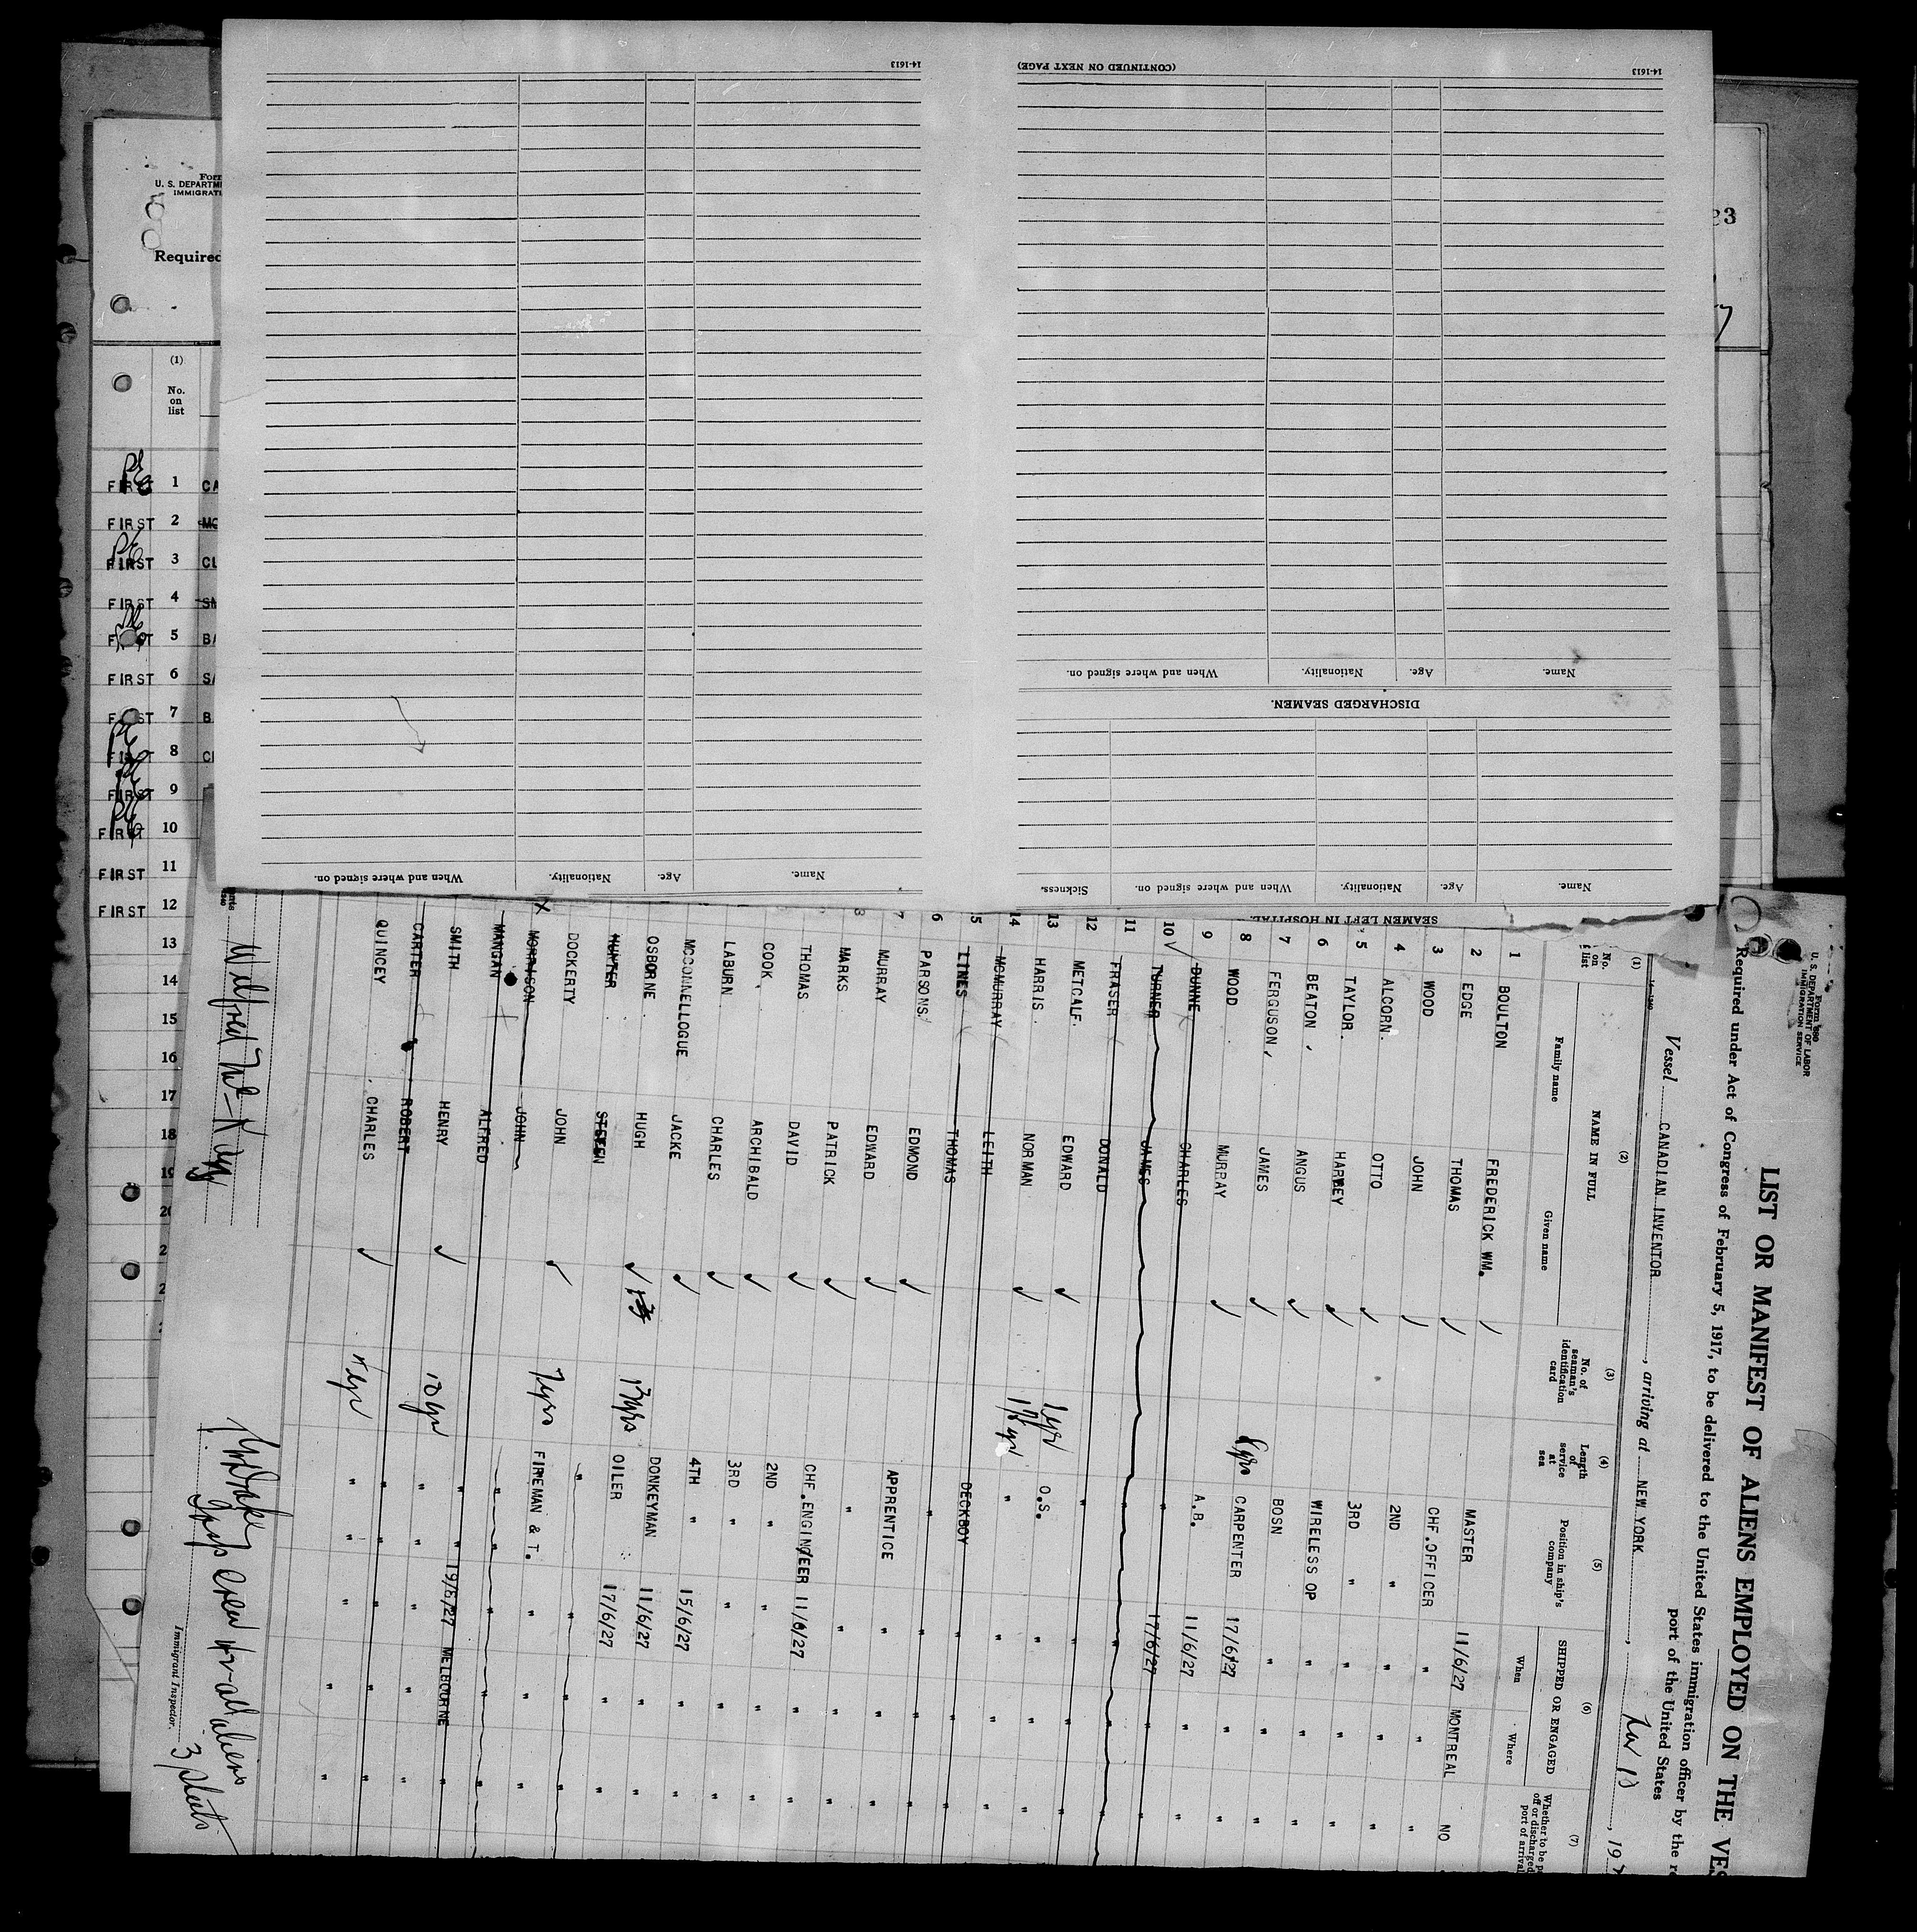 14-1613
(CONTINUED ON NEXT PAGE)
14-1613
When and where signed on. Nationality. Age. Name.
DISCHARGED SEAMEN.
When and where signed on. Nationality. Age. Name.
Sickness. When and where signed on. Nationality. Age. Name.
SEAMEN LEFT IN HOSPITAL.
U. S. DEPARTM
IMMIGRATI
Required
23
(1)
No.
on
list
FIRST 1 CA
FIRST 2 MC
FIRST 3 CL
FIRST 4 SM
5 BA
FIRST 6 SA
7 B
FIRST 8
FIRST 9
FIRST 10
FIRST 11
FIRST 12
13
14
15
16
17
18
19
Form 680
U. S. DEPARTMENT OF LABOR
IMMIGRATION SERVICE
LIST OR MANIFEST OF ALIENS EMPLOYED ON THE VES
Required under Act of Congress of February 5, 1917, to be delivered to the United States immigration officer by the re
port of the United States
Vessel CANADIAN INVENTOR, arriving at NEW YORK, 19
(1) (2) (3) (4) (5) (6) (7)
No. on list NAME IN FULL No. of seaman's identification card Length of service at sea Position in ship's company SHIPPED OR ENGAGED Whether to be off or discharged port of arrival
Family name Given name When Where
1 BOULTON FREDERICK WM. MASTER 11/6/27 MONTREAL NO
2 EDGE THOMAS CHF.OFFICER " " "
3 WOOD JOHN 2ND " " " "
4 ALCORN. OTTO 3RD " " " "
5 TAYLOR. HARVEY WIRELESS OP " " "
6 BEATON, ANGUS BOSN " " "
7 FERGUSON, JAMES CARPENTER 17/6/27 " "
8 WOOD MURRAY 8yrs A.B. 11/6/27 " "
9 DUNNE CHARLES " 17/6/27 " "
10 TURNER JAMES " " " "
11 FRASER DONALD " " " "
12 METCALF. EDWARD 1yr O.S. " " "
13 HARRIS. NORMAN " " " "
14 MCMURRAY LEITH DECKBOY " " "
15 LINES THOMAS " " " "
6 PARSONS. EDMOND APPRENTICE " " "
7 MURRAY EDWARD " " " "
8 MARKS PATRICK CHF.ENGINEER 11/6/27 " "
THOMAS DAVID 2ND " " " "
COOK, ARCHIBALD 3RD " " " "
LABURN. CHARLES 4TH " 15/6/27 " "
MCCONNELLOGUE JACKE DONKEYMAN 11/6/27 " "
OSBORNE HUGH 13yrs OILER 17/6/27 " "
HUNTER STEEN " " " "
DOCKERTY JOHN 7yrs FIREMAN & T. " " "
MORRISON JOHN " " " " "
MANGAN ALFRED " " 19/6/27 MELBOURNE "
SMITH HENRY 10 yr " " " " "
CARTER ROBERT " " " " "
QUINCEY CHARLES " " " " "
Immigrant Inspector.
3 sheets